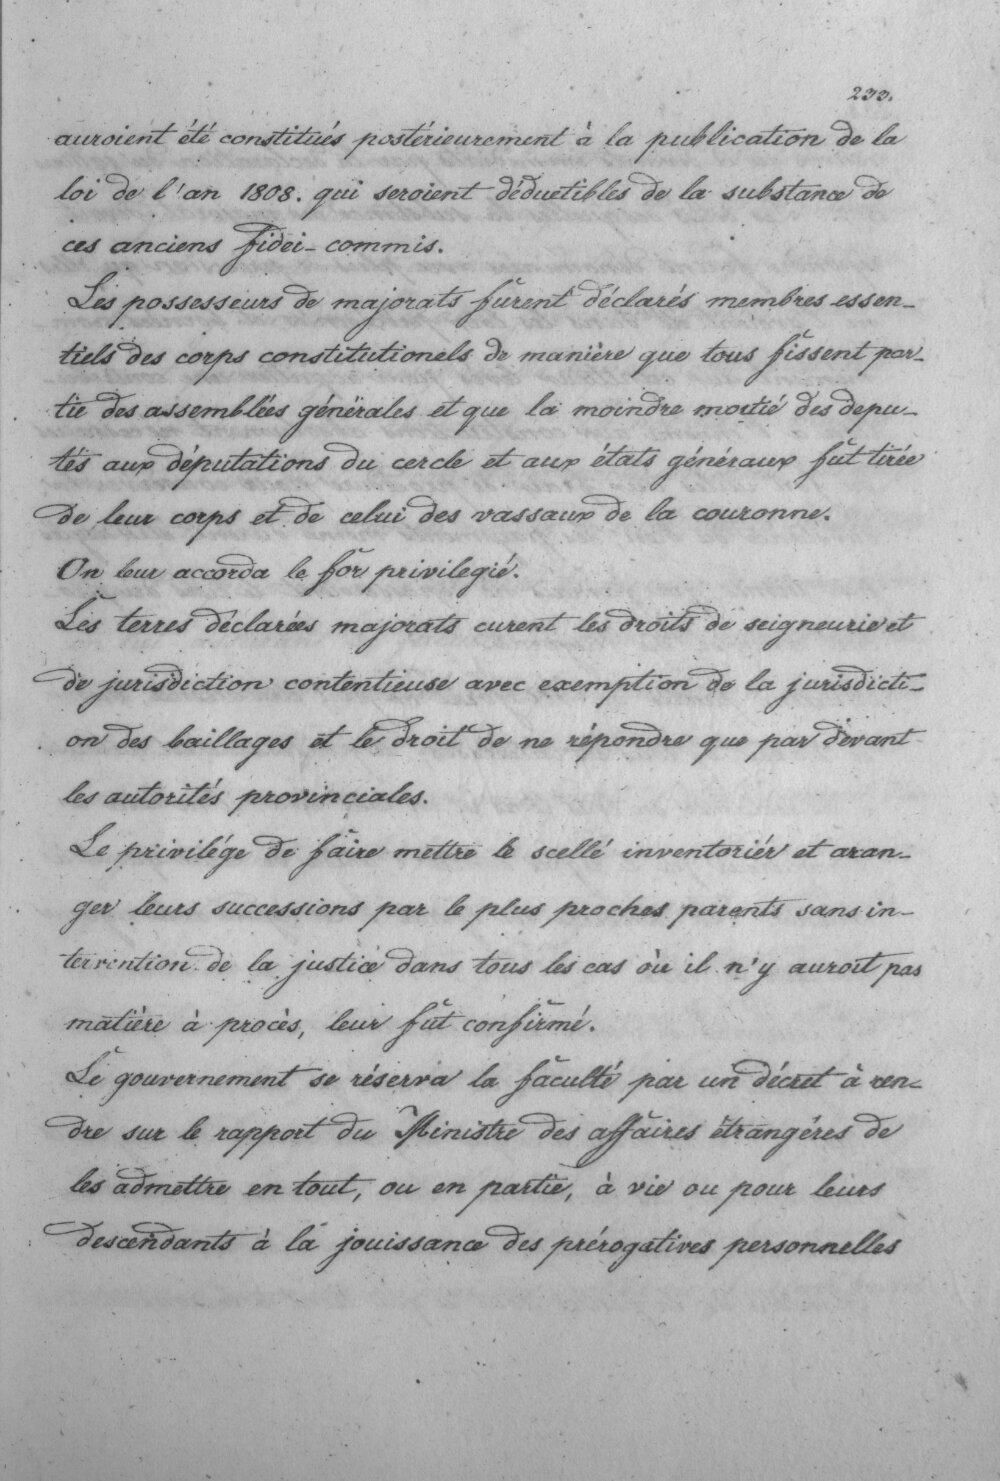 233.
auroient été constitués postérieurement à la publication de la
loi de l'an 1808. qui seroient déductibles de la substance de
ces anciens fidei-commis.
Les possesseurs de majorats furent déclarés membres essen-
tiels des corps constitutionels de manière que tous fissent par-
tie des assemblées générales et que la moindre moitié des depu-
tés aux députations du cercle et aux états généraux fut tirée
de leur corps et de celui des vassaux de la couronne.
On leur accorda le for privilegié.
Les terres déclarées majorats eurent les droits de seigneurie et
de jurisdiction contentieuse avec exemption de la jurisdicti-
on des baillages et le droit de ne répondre que par devant
les autorités provinciales.
Le privilége de faire mettre le scellé inventoriér et aran-
ger leurs successions par le plus proches parents sans in-
tervention de la justice dans tous les cas où il n'y auroit pas
matière à procès, leur fut confirmé.
Le gouvernement se réserva la faculté par un décret à ren-
dre sur le rapport du Ministre des affaires étrangéres de
les admettre en tout, ou en partie, à vie ou pour leurs
descendants à la jouissance des prérogatives personnelles